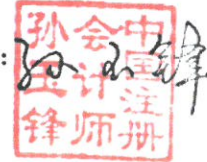 :孙玉锋
中国注册
会计师
孙玉锋